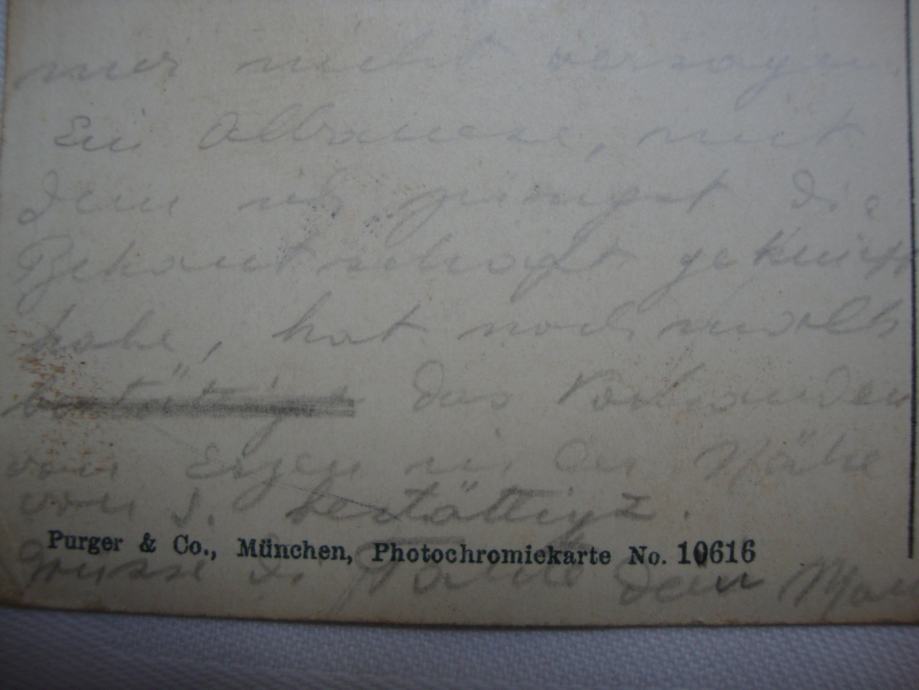 mir nicht versagen.
Ein Albanese, mit
dem ich jüngst die
Bekantschaft geknüpft
habe, hat nochmalls
bestättigt das Vorhanden
von Erzen in der Nähe
von S. bestättigt.
Purger & Co., München, Photochromiekarte No. 10616
Grüsse d. Tante dein